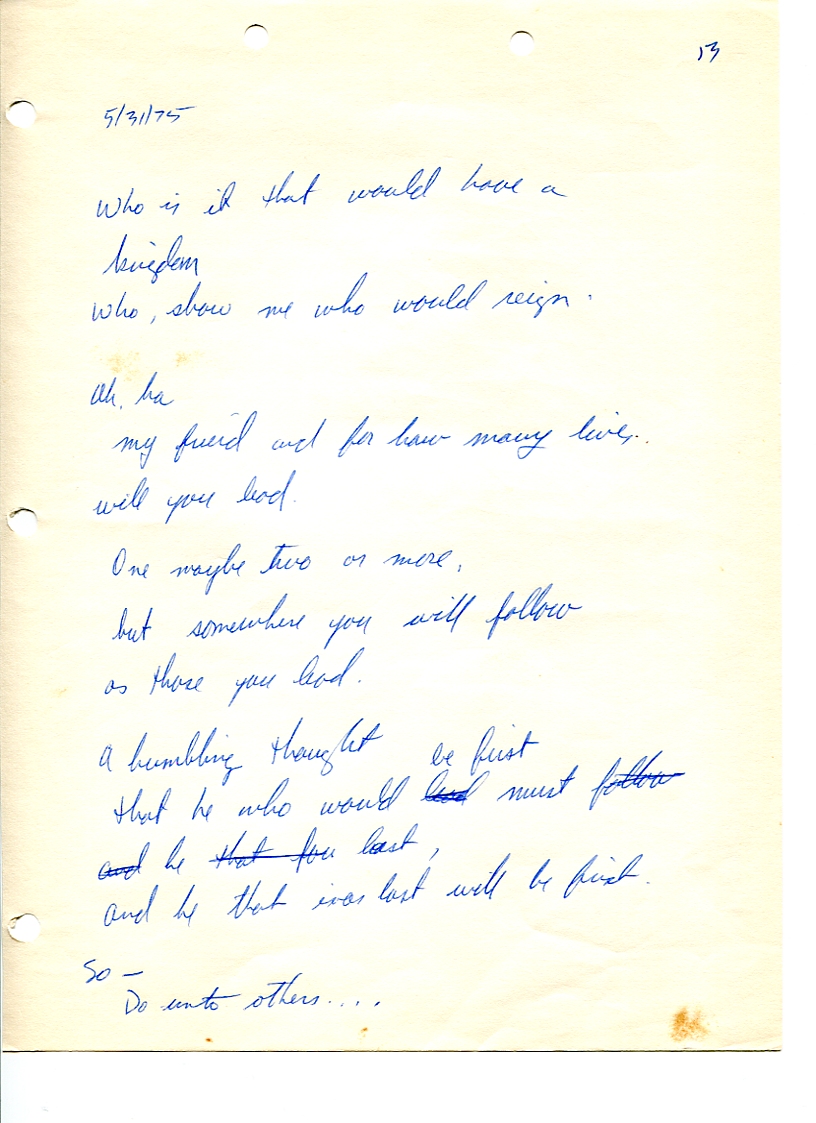 13
5/31/75
Who is it that would have a
kingdom
Who, show me who would reign.
Ah, ha
my friend and for how many lives..
will you lead.
One maybe two or more,
but somewhere you will follow
as those you lead.
A humbling thought be first
that he who would lead must follow
and be that fou last,
and he that was last will be first.
So —
Do unto others....